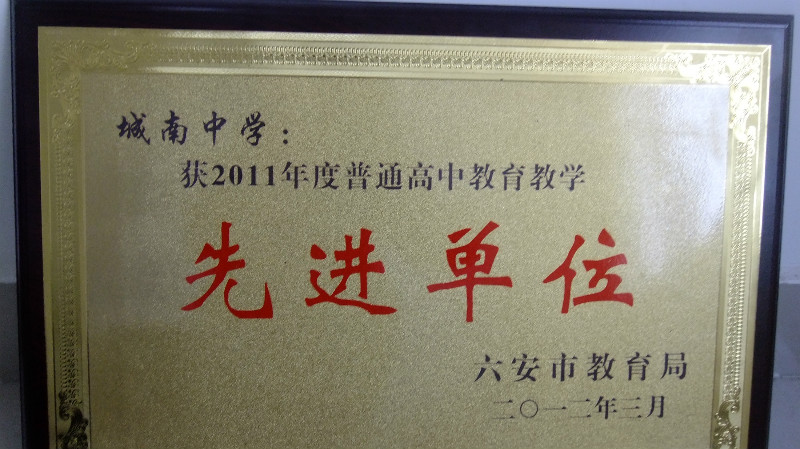 城南中学：
获2011年度普通高中教育教学
先进单位
六安市教育局
二〇一二年三月